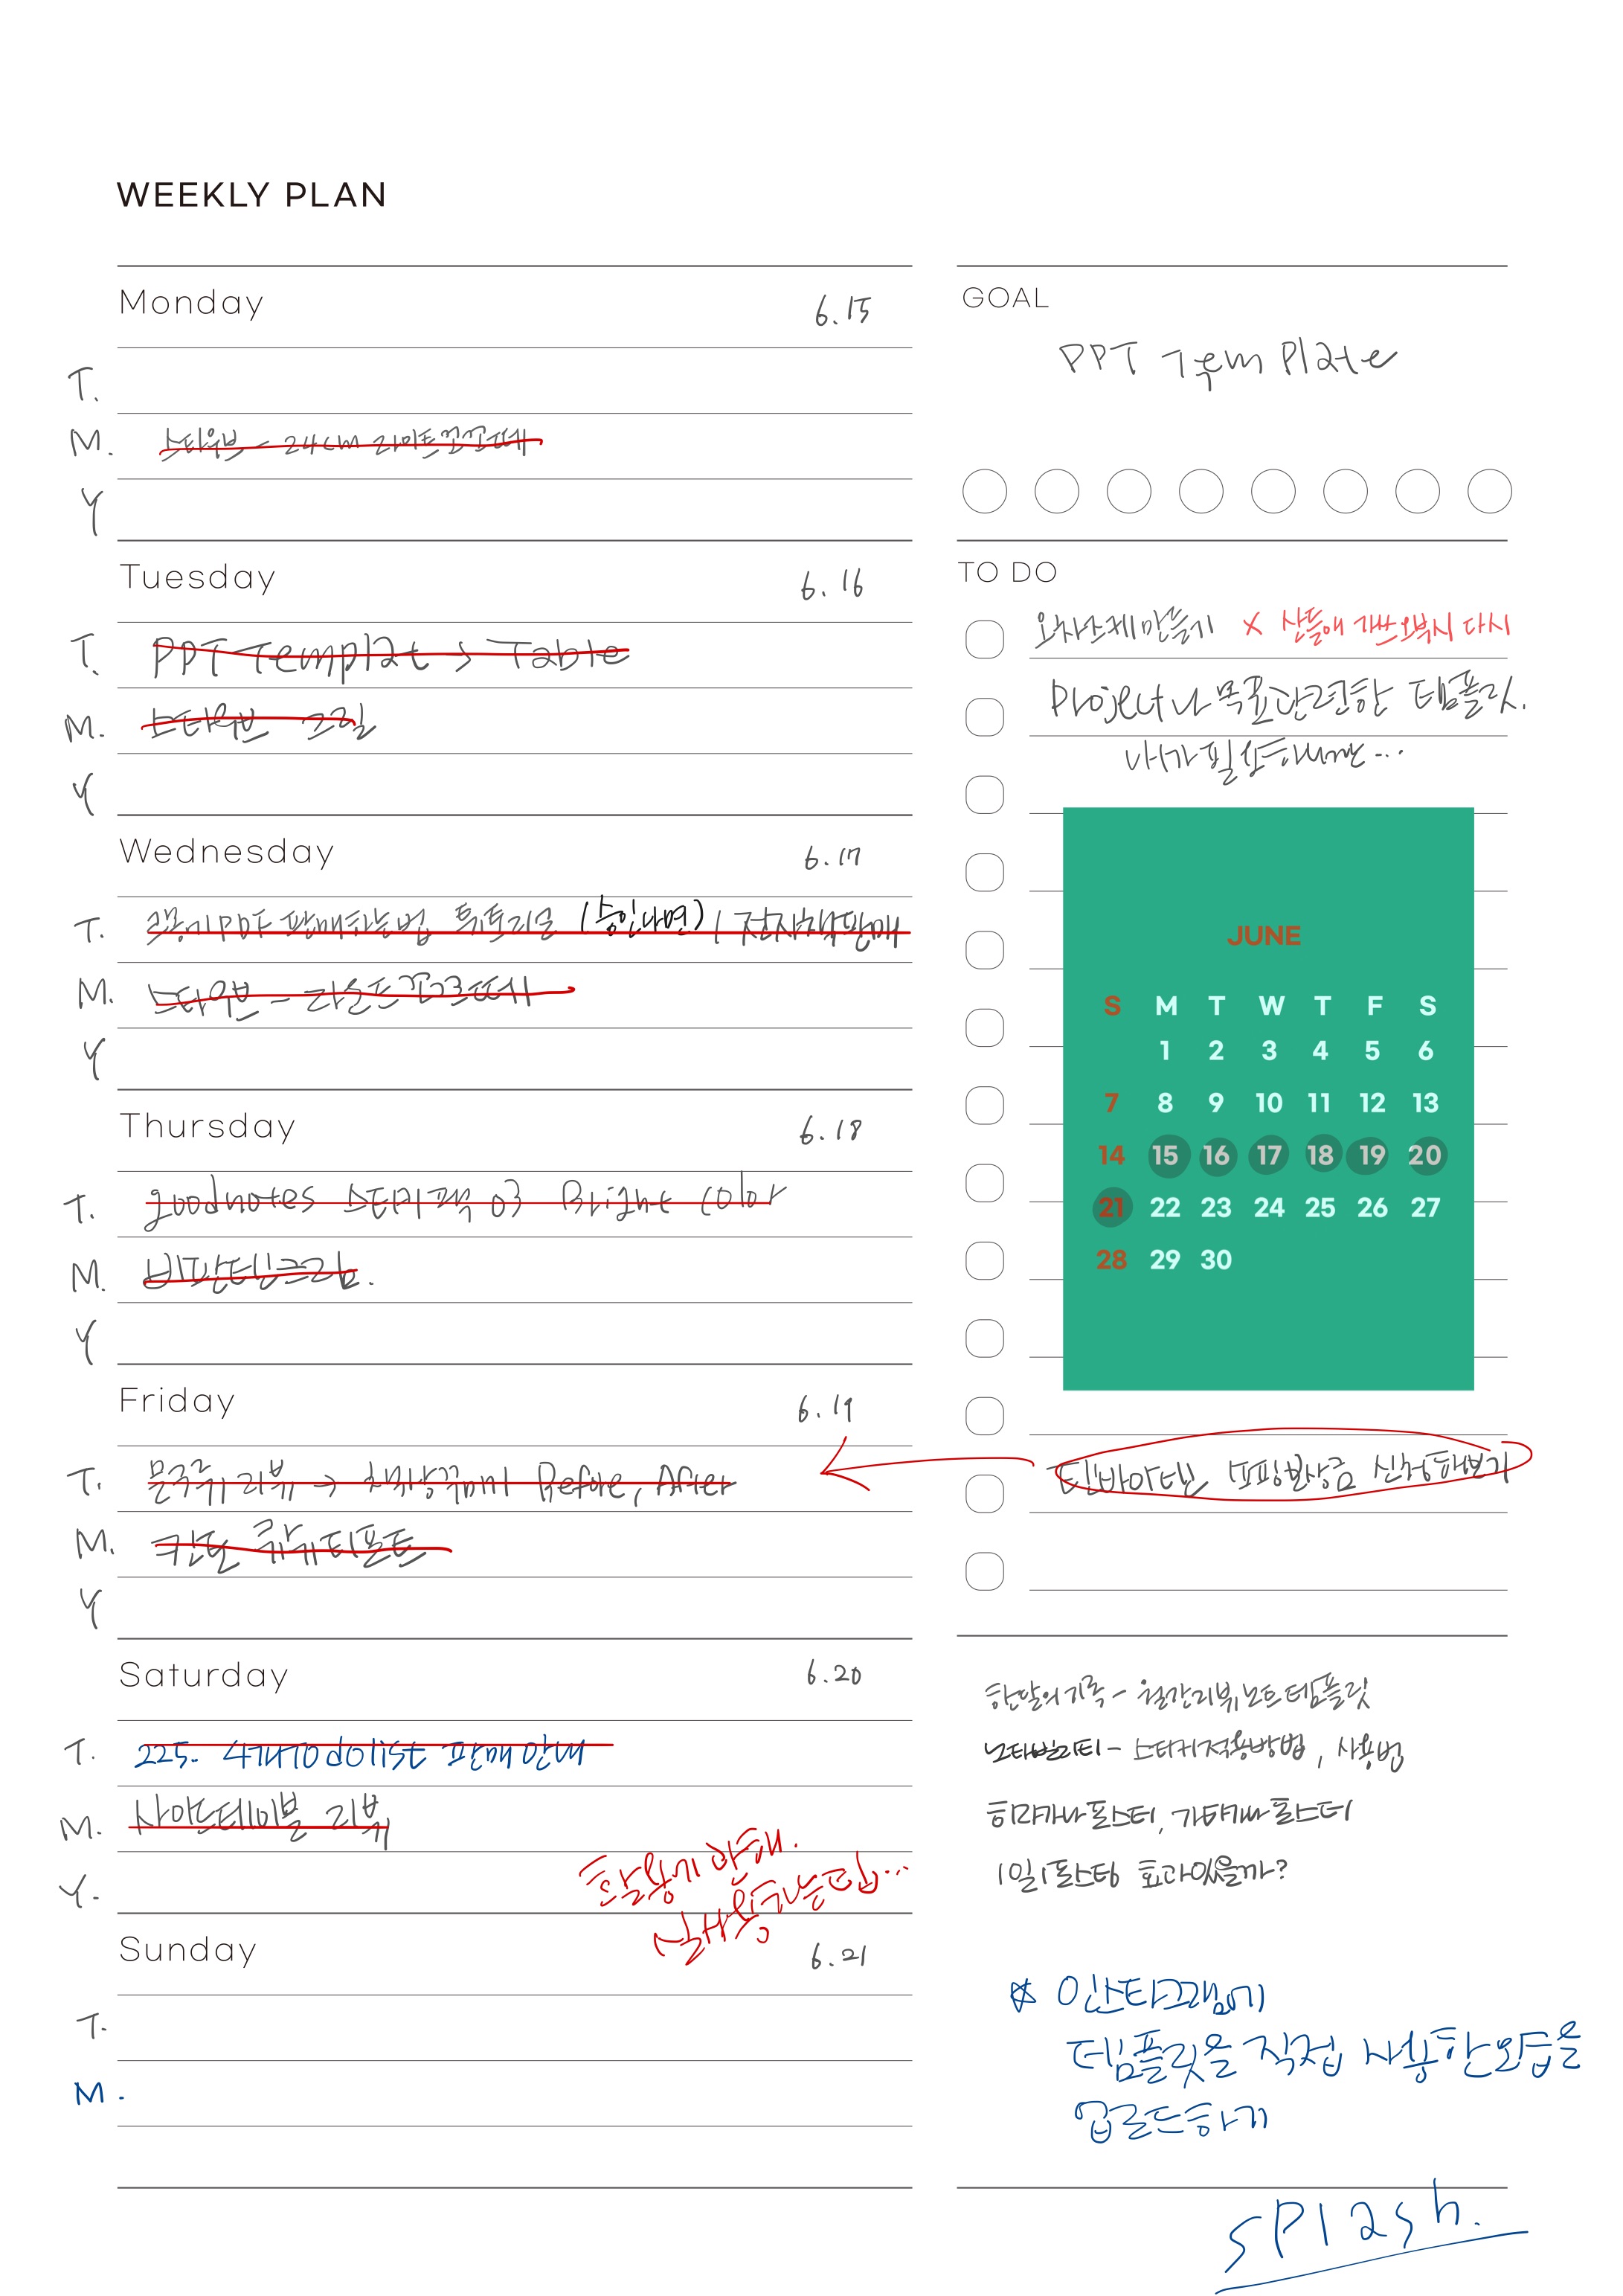 WEEKLY PLAN
Monday 6.15
T.
M. 스타우브 - 24cm 라이트꼬꼬떼
Y
Tuesday 6.16
T. PPT Templat > Table
M. 스타우브 그릴
Y
Wednesday 6.17
T. 크몽에PDF 판매하는법 튜토리얼 (승인나면) / 전자책판매
M. 스타우브 - 라운드꼬꼬떼
Y
Thursday 6.18
T. goodnotes 스티커팩 03 Bright Color
M. 비판텐크림.
Y
Friday 6.19
T. 문구류 리뷰 → 책상꾸미기 Before, After
M. 큐티폴
Y
Saturday 6.20
T. 225. 4개TO do list 판매 안내
M. 사이드테이블 리뷰
Y.
안해.
Sunday 6.21
T.
M.
GOAL
PPT Template
TO DO
오차즈케만들기 X 다시
Project나 목표관련한 템플릿.
내가 필요하니깐...
JUNE
S M T W T F S
1 2 3 4 5 6
7 8 9 10 11 12 13
14 15 16 17 18 19 20
21 22 23 24 25 26 27
28 29 30
텐바이텐 쇼핑보상금 신청해보기
한달의기록 - 월간리뷰노트템플릿
노타빌리티 - 스티커적용방법, 사용법
히라가나포스터, 가타카나포스터
1일1포스팅 효과있을까?
☆ 인스타그램에
템플릿을 직접 사용한모습을
업로드하기
SPlash.